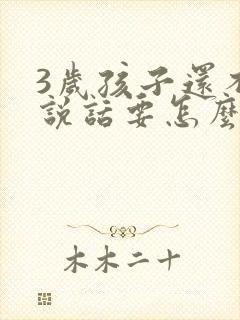 3歲孩子還不
說話要怎麼
木木二十